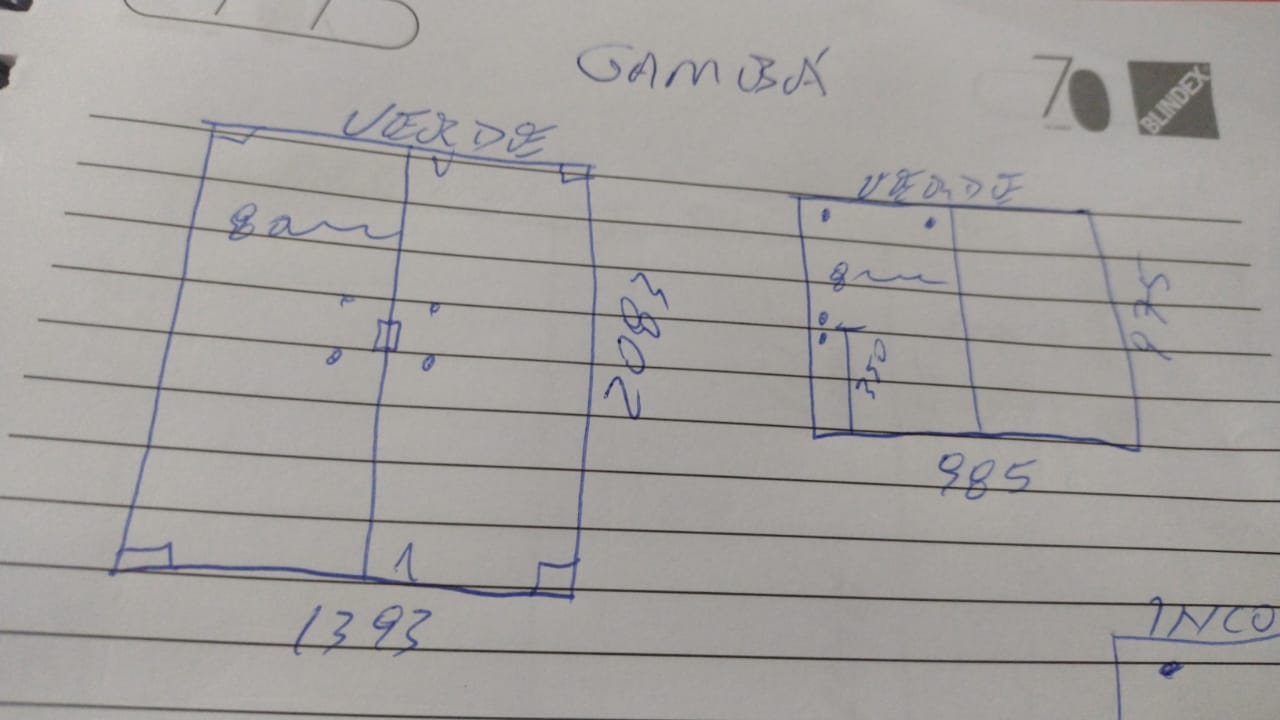 GAMBÁ
70
BLINDEX
VERDE
8mm
2083
1393
VERDE
8mm
350
975
985
INCO